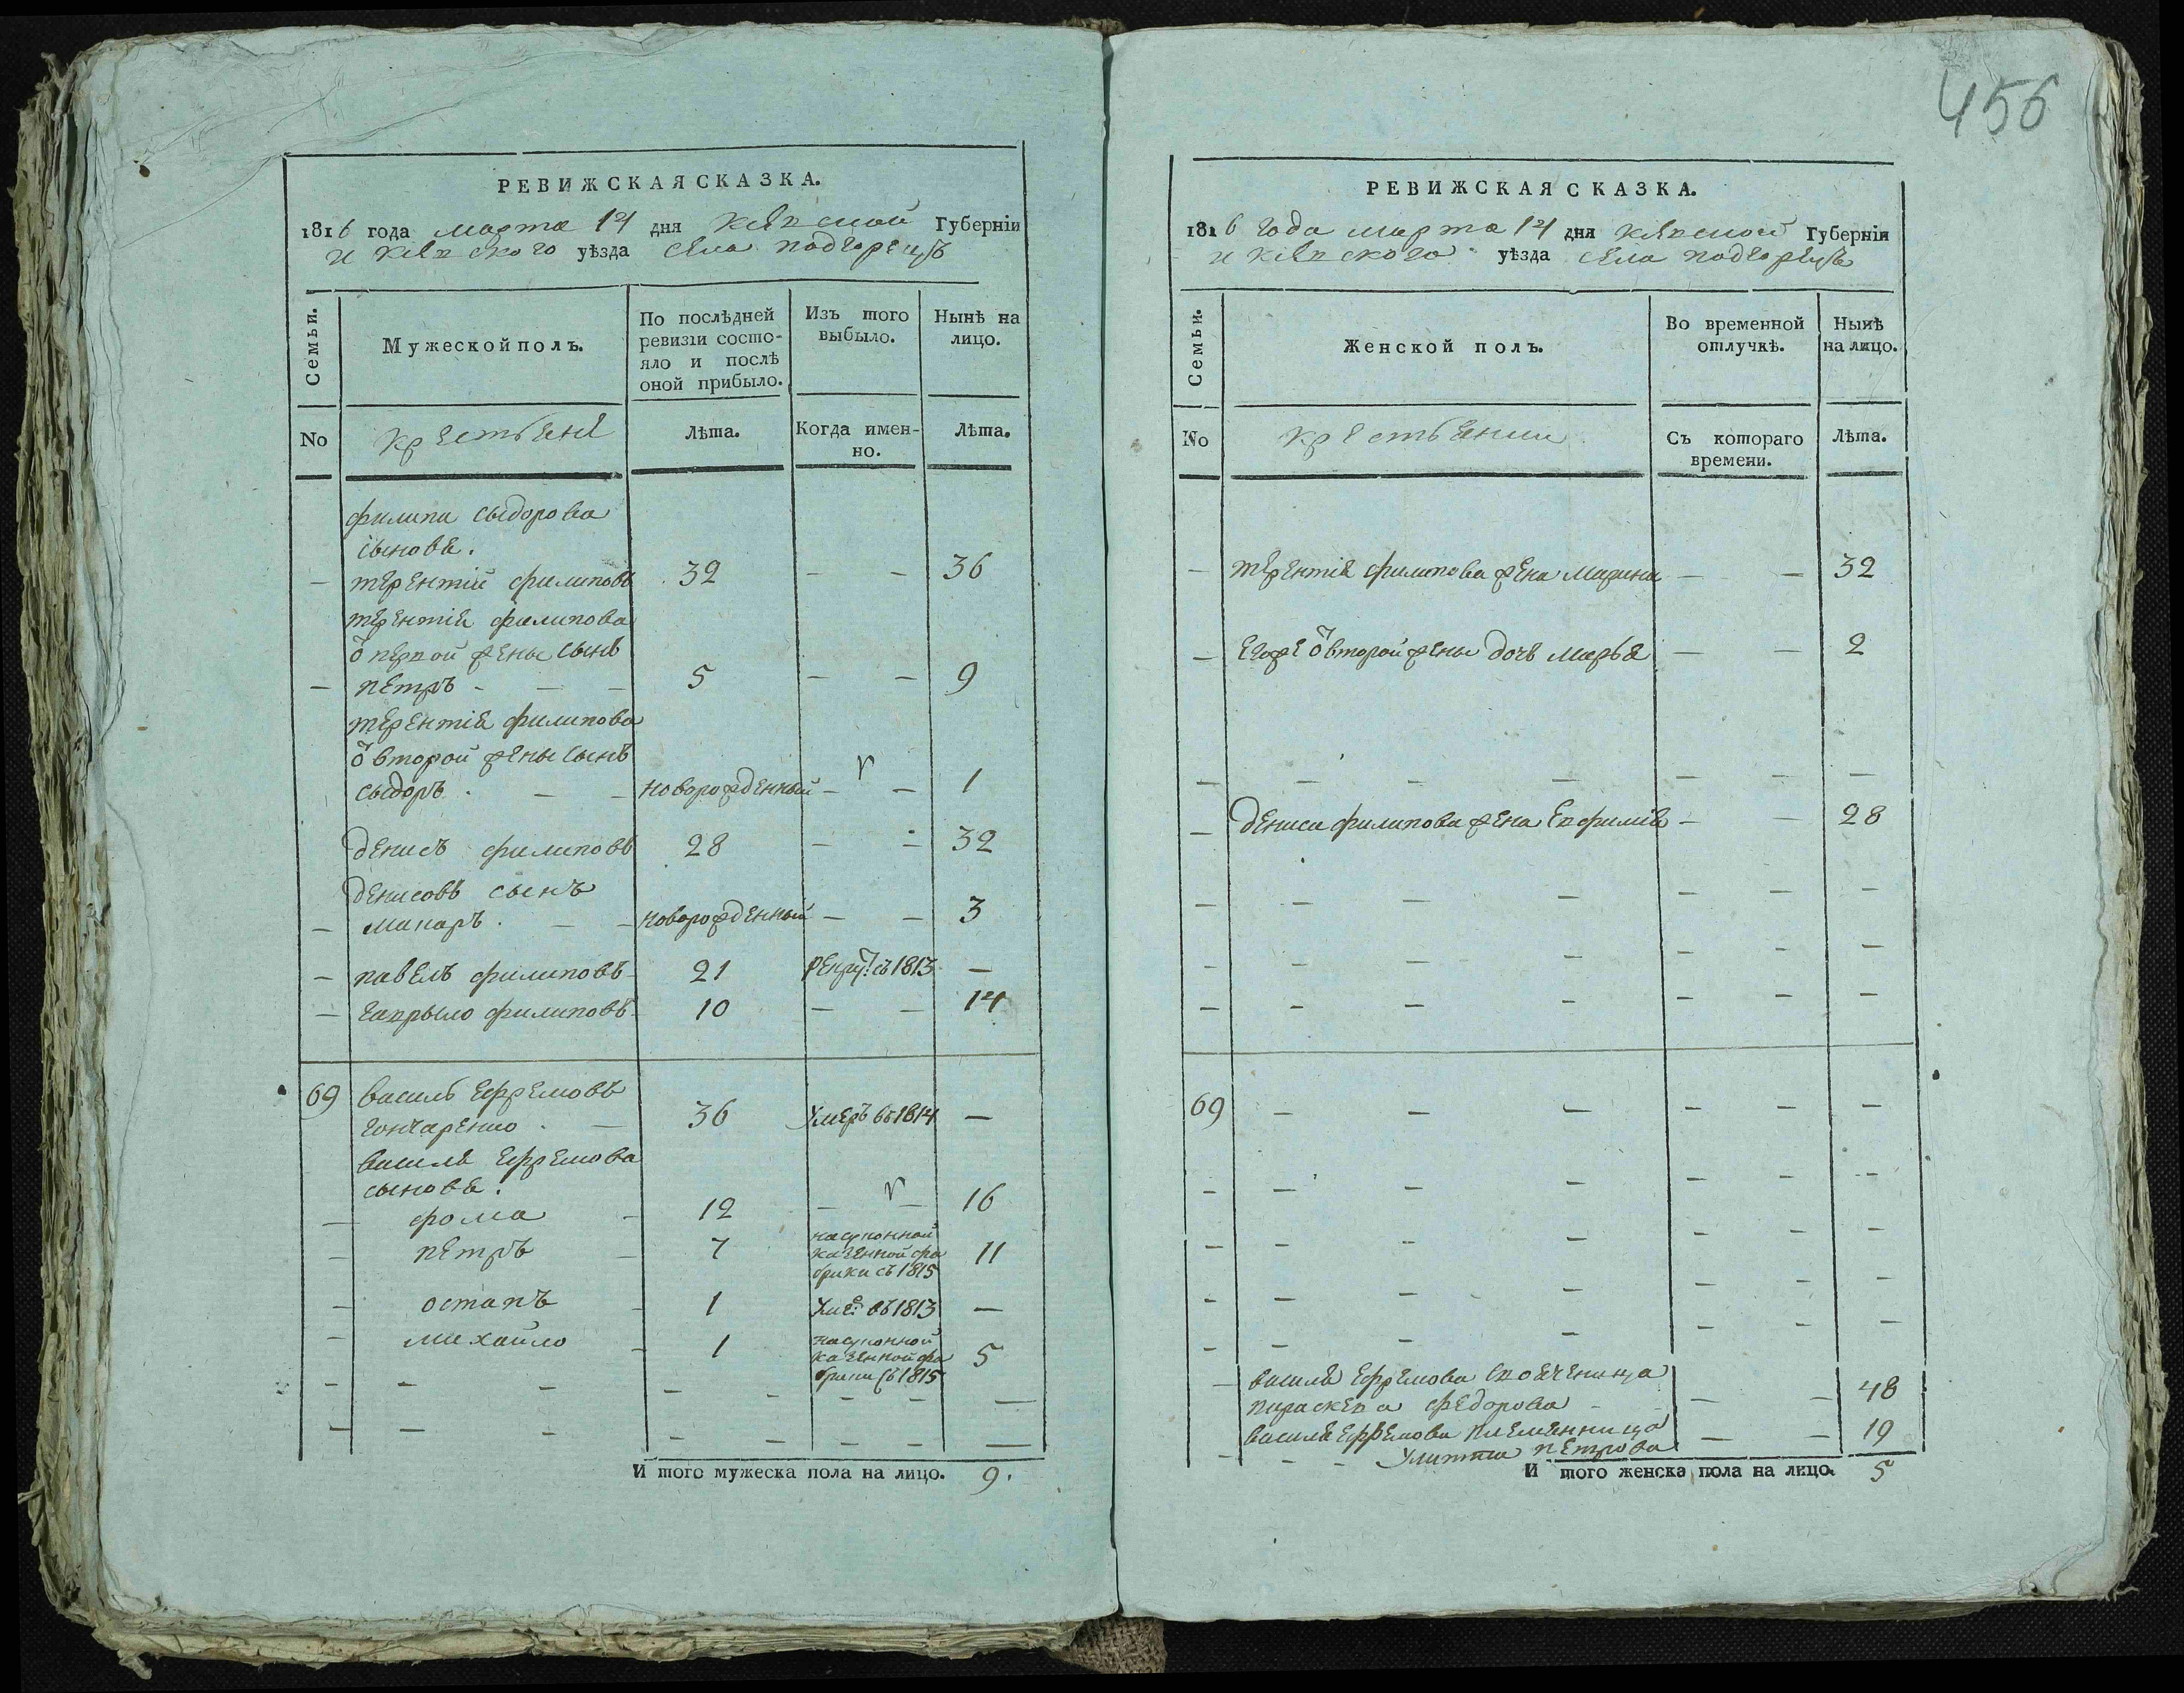 РЕВИЖСКАЯ СКАЗКА.
1816 года марта 14 дня Кіевской Губерніи
и Кіевского уѣзда села подгорецъ
Семьи.
Мужеской полъ.
По послѣдней ревизіи состояло и послѣ оной прибыло.
Изъ того выбыло.
Нынѣ на лицо.
No
крестьяне
Лѣта.
Когда именно.
Лѣта.
филипа сыдорова
сыновя.
— терентій филиповъ 32 — — 36
терентія филипова
ѿ первой жены сынъ
— петръ - — — 5 — — 9
терентія филипова
ѿ второй жены сынъ
сыдоръ . — — новорожденный — — 1
денисъ филиповъ 28 — — 32
денисовъ сынъ
— макаръ . — — новорожденный — — 3
— павелъ филиповъ 21 рекру: съ 1813 —
— гаврыло филиповъ 10 — — 14
69 василь ефремовъ
гончаренко . — 36 Умеръ въ 1814 —
василя ефремова
сыновя.
— фома — 12 — — 16
— петръ — 7 11
на суконной
казенной фа
брики съ 1815
— остапъ — 1 Уме: въ 1813 —
— михайло — 1 5
на суконной
казенной фа
брики съ 1815
И того мужеска пола на лицо. 9.
456
РЕВИЖСКАЯ СКАЗКА.
1816 года марта 14 дня Кіевской Губерніи
и Кіевского уѣзда села подгорецъ
Семьи.
Женской полъ.
Во временной отлучкѣ.
Нынѣ на лицо.
No
крестьянки
Съ котораго времени.
Лѣта.
— терентія филипова жена Марина — — 32
— егоже ѿ второй жены дочь марья — — 2
— дениса филипова жена Евфимія — — 28
69 — — — — — —
василя ефремова своячница
параскева федорова — — 48
василя ефремова племянница — — 19
Улитта петрова
И того женска пола на лицо. 5